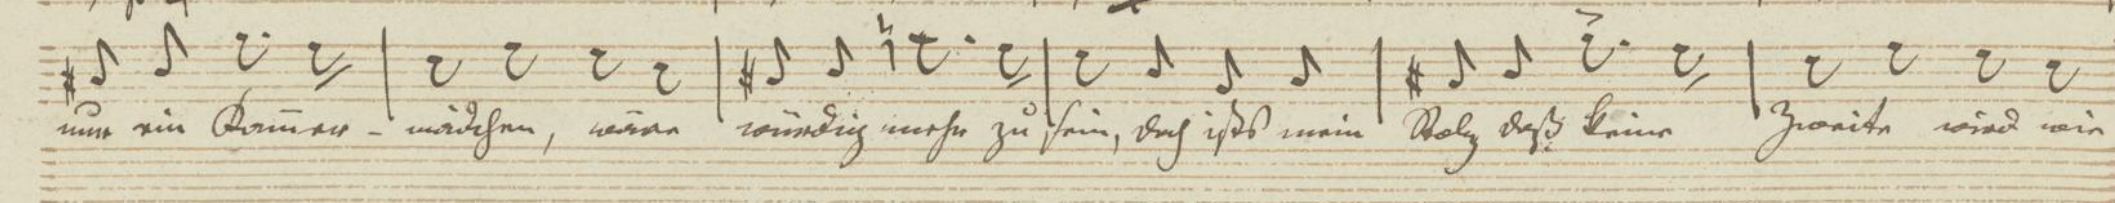 nur ein Kam̄er-mädchen, wäre würdig mehr zu sein, doch ists mein Stolz daß keine Zweite wird wie